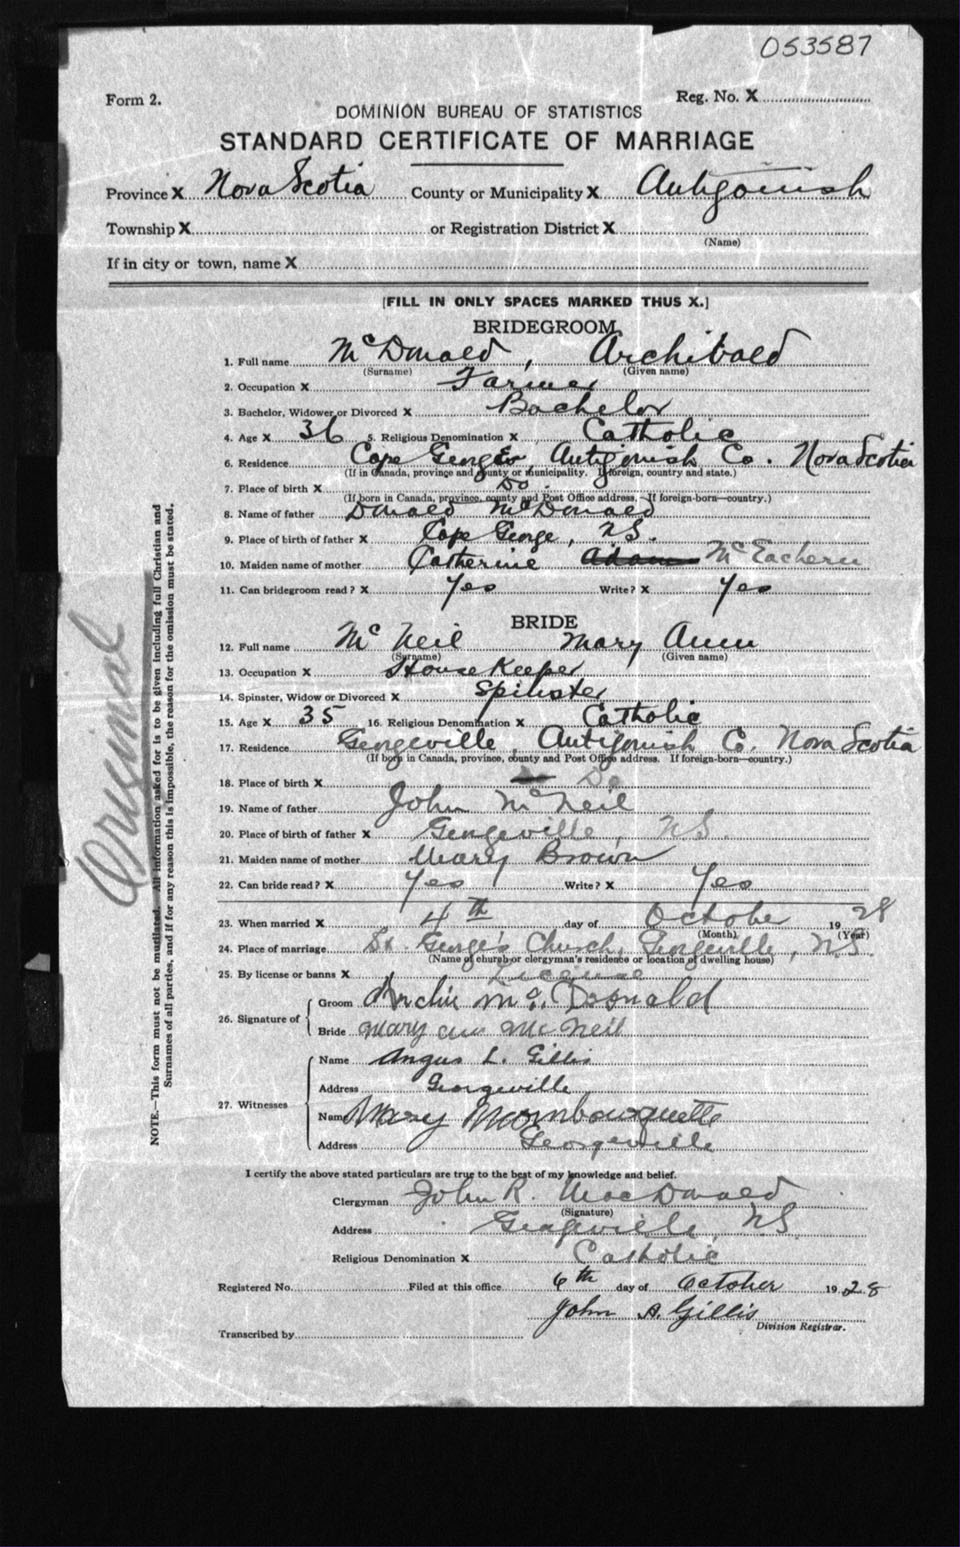 053587
Form 2.
Reg. No. X
DOMINION BUREAU OF STATISTICS
STANDARD CERTIFICATE OF MARRIAGE
Province X Nova Scotia County or Municipality X Antigonish
Township X or Registration District X
(Name)
If in city or town, name X
[FILL IN ONLY SPACES MARKED THUS X.]
BRIDEGROOM
1. Full name McDonald, Archibald
(Surname) (Given name)
2. Occupation X Farmer
3. Bachelor, Widower or Divorced X Bachelor
4. Age X 36 5. Religious Denomination X Catholic
6. Residence Cape George, Antigonish Co. Nova Scotia
(If in Canada, province and county or municipality. If foreign, country and state.)
7. Place of birth X Do.
(If born in Canada, province, county and Post Office address. If foreign-born—country.)
8. Name of father Donald McDonald
9. Place of birth of father X Cape George, N.S.
10. Maiden name of mother Catherine McEachern
11. Can bridegroom read? X Yes Write? X Yes
BRIDE
12. Full name McNeil Mary Ann
(Surname) (Given name)
13. Occupation X House Keeper
14. Spinster, Widow or Divorced X Spinster
15. Age X 35 16. Religious Denomination X Catholic
17. Residence Georgeville, Antigonish Co. Nova Scotia
(If born in Canada, province, county and Post Office address. If foreign-born—country.)
18. Place of birth X Do
19. Name of father John McNeil
20. Place of birth of father X Georgeville, N.S.
21. Maiden name of mother Mary Brown
22. Can bride read? X Yes Write? X Yes
23. When married X 4th day of October 1928
(Month) (Year)
24. Place of marriage St. George's Church, Georgeville, N.S.
(Name of church or clergyman's residence or location of dwelling house)
25. By license or banns X License
26. Signature of
Groom Archie McDonald
Bride Mary Ann McNeil
27. Witnesses
Name Angus L. Gillis
Address Georgeville
Name Mary Mombourquette
Address Georgeville
I certify the above stated particulars are true to the best of my knowledge and belief.
Clergyman John R. MacDonald
(Signature)
Address Georgeville, N.S.
Religious Denomination X Catholic
Registered No. Filed at this office 6th day of October 1928
John A. Gillis
Division Registrar.
Transcribed by
Original
NOTE.—This form must not be mutilated. All information asked for is to be given including full Christian and
Surnames of all parties, and if for any reason this is impossible, the reason for the omission must be stated.